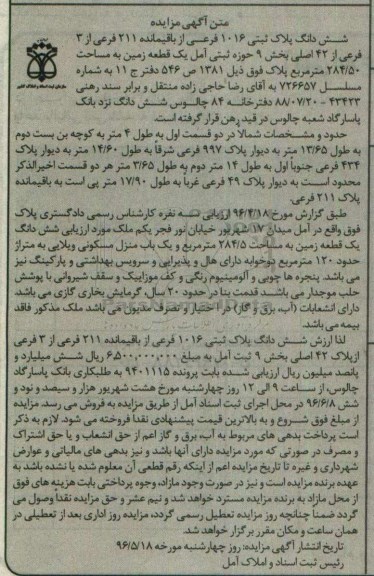 متن آگهی مزایده
شش دانگ پلاک ثبتی ۱۰۱۶ فرعی از باقیمانده ۲۱۱ فرعی از ۳
فرعی از ۴۲ اصلی بخش ۹ حوزه ثبتی آمل یک قطعه زمین به مساحت
۲۸۴/۵۰ مترمربع پلاک فوق ذیل ۱۳۸۱ ص ۵۴۶ دفتر ج ۱۱ به شماره
مسلسل ۷۲۶۶۵۷ به آقای رضا حاجی زاده منتقل و برابر سند رهنی
۴۳۴۳۳ - ۸۸/۰۷/۲۰ دفترخانه ۸۴ چالوس شش دانگ نزد بانک
پاسارگاد شعبه چالوس در قید رهن قرار گرفته است.
حدود و مشخصات شمالا در دو قسمت اول به طول ۴ متر به کوچه بن بست دوم
به طول ۱۳/۶۵ متر به دیوار پلاک ۹۹۷ فرعی شرقا به طول ۱۴/۶۰ متر به دیوار پلاک
۴۳۴ فرعی جنوباً اول به طول ۱۴ متر دوم به طول ۳/۶۵ متر هر دو قسمت اخیرالذکر
محدود است به دیوار پلاک ۴۹ فرعی غرباً به طول ۱۷/۹۰ متر پی است به باقیمانده
پلاک ۲۱۱ فرعی.
طبق گزارش مورخ ۹۶/۴/۱۸ ارزیابی سه نفره کارشناس رسمی دادگستری پلاک
فوق واقع در آمل میدان ۱۷ شهریور خیابان نور فجر یکم ملک مورد ارزیابی شش دانگ
یک قطعه زمین به مساحت ۲۸۴/۵ مترمربع و یک باب منزل مسکونی ویلایی به متراژ
حدود ۱۲۰ مترمربع دوخوابه دارای هال و پذیرایی و سرویس بهداشتی و پارکینگ نیز
می باشد. پنجره ها چوبی و آلومینیوم رنگی و کف موزاییک و سقف شیروانی با پوشش
حلب موجدار می باشد قدمت بنا در حدود ۲۰ سال، گرمایش بخاری گازی می باشد.
دارای انشعابات (آب، برق و گاز) در اختیار و تصرف مدیون می باشد. ملک مذکور فاقد
بیمه می باشد.
لذا ارزش شش دانگ پلاک ثبتی ۱۰۱۶ فرعی از باقیمانده ۲۱۱ فرعی از ۳ فرعی
از پلاک ۴۲ اصلی بخش ۹ ثبت آمل به مبلغ ۶,۵۰۰,۰۰۰,۰۰۰ ریال شش میلیارد و
پانصد میلیون ریال ارزیابی شده بابت پرونده ۹۴۰۱۱۱۵ به طلبکاری بانک پاسارگاد
چالوس، از ساعت ۹ الی ۱۲ روز چهارشنبه مورخ هشت شهریور هزار و سیصد و نود و
شش ۹۶/۶/۸ در محل اجرای ثبت اسناد آمل از طریق مزایده به فروش می رسد. مزایده
از مبلغ فوق شروع و به بالاترین قیمت پیشنهادی نقدا فروخته می شود. لازم به ذکر
است پرداخت بدهی های مربوط به آب، برق و گاز اعم از حق انشعاب و یا حق اشتراک
و مصرف در صورتی که مورد مزایده دارای آنها باشد و نیز بدهی های مالیاتی و عوارض
شهرداری و غیره تا تاریخ مزایده اعم از اینکه رقم قطعی آن معلوم شده یا نشده باشد به
عهده برنده مزایده است و نیز در صورت وجود مازاد، وجوه پرداختی بابت هزینه های فوق
از محل مازاد به برنده مزایده مسترد خواهد شد و نیم عشر و حق مزایده نقدا وصول می
گردد ضمنا چنانچه روز مزایده تعطیل رسمی گردد، مزایده روز اداری بعد از تعطیلی در
همان ساعت و مکان مقرر برگزار خواهد شد.
تاریخ انتشار آگهی مزایده: روز چهارشنبه مورخه ۹۶/۵/۱۸
رئیس ثبت اسناد و املاک آمل